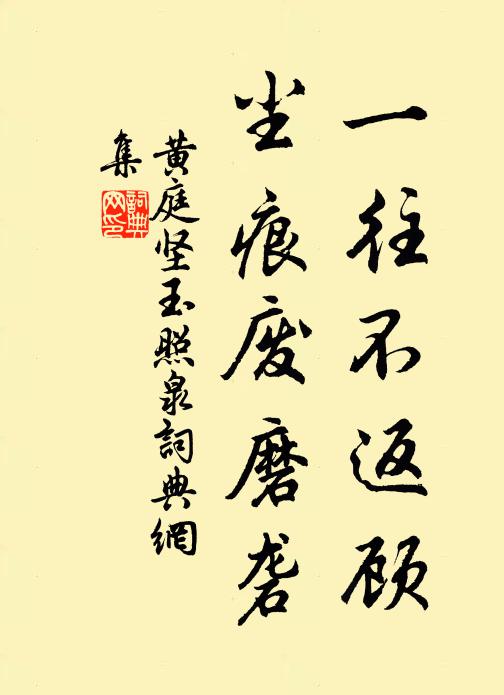 一往不返顾
尘痕废磨砻
黄庭坚玉照泉詞典網
集
詞典
网印